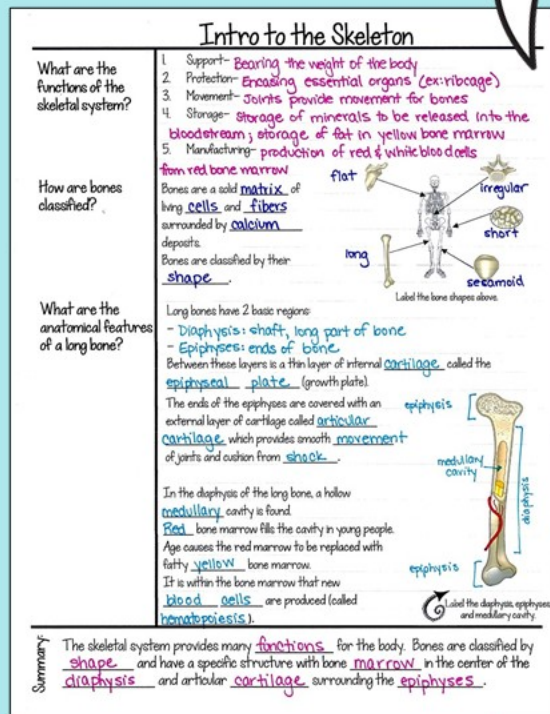 Intro to the Skeleton
What are the
functions of the
skeletal system?
1. Support- Bearing the weight of the body
2. Protection- Encasing essential organs (ex: ribcage)
3. Movement- Joints provide movement for bones
4. Storage- Storage of minerals to be released into the
bloodstream; storage of fat in yellow bone marrow
5. Manufacturing- production of red & white blood cells
from red bone marrow
How are bones
classified?
Bones are a solid matrix of
living cells and fibers
surrounded by calcium
deposits.
Bones are classified by their
shape.
flat
irregular
short
long
sesamoid
Label the bone shapes above.
What are the
anatomical features
of a long bone?
Long bones have 2 basic regions:
- Diaphysis: shaft, long part of bone
- Epiphyses: ends of bone
Between these layers is a thin layer of internal cartilage called the
epiphyseal plate (growth plate).
The ends of the epiphyses are covered with an
external layer of cartilage called articular
cartilage which provides smooth movement
of joints and cushion from shock.
In the diaphysis of the long bone, a hollow
medullary cavity is found.
Red bone marrow fills the cavity in young people.
Age causes the red marrow to be replaced with
fatty yellow bone marrow.
It is within the bone marrow that new
blood cells are produced (called
hematopoiesis).
epiphysis
medullary
cavity
diaphysis
epiphysis
Label the diaphysis, epiphyses
and medullary cavity.
Summary:
The skeletal system provides many functions for the body. Bones are classified by
shape and have a specific structure with bone marrow in the center of the
diaphysis and articular cartilage surrounding the epiphyses.